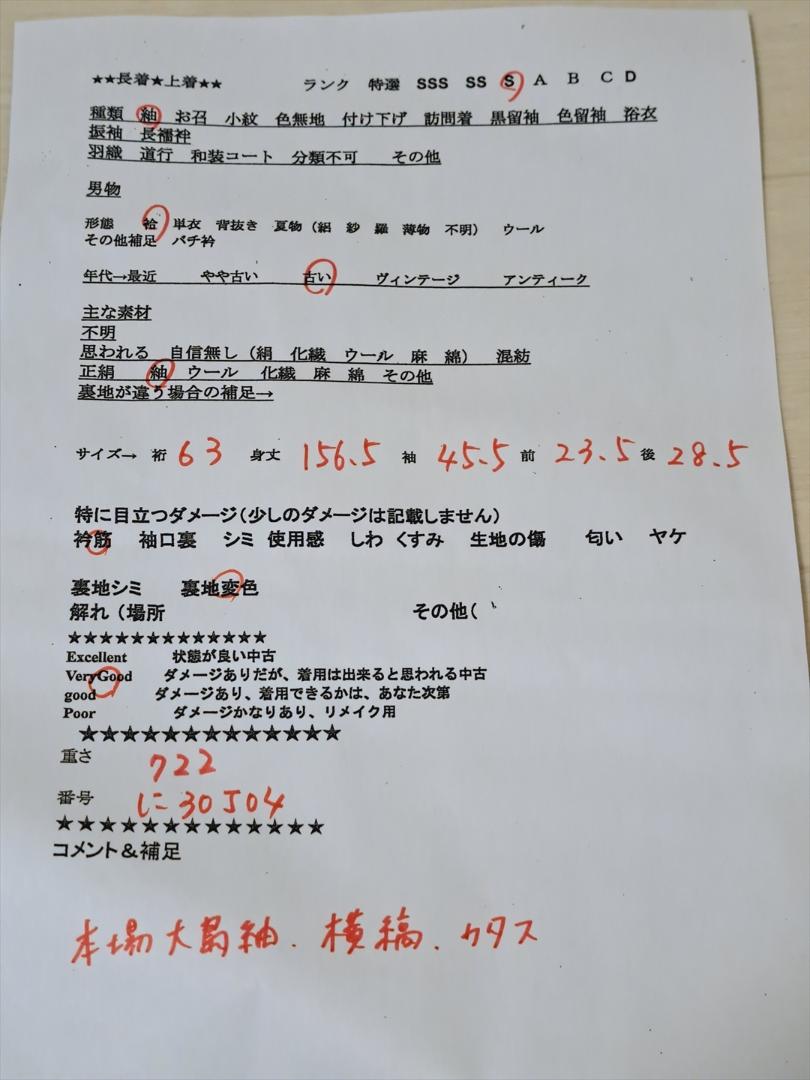 ★★長着★上着★★ ランク 特選 SSS SS S A B C D
種類 紬 お召 小紋 色無地 付け下げ 訪問着 黒留袖 色留袖 浴衣
振袖 長襦袢
羽織 道行 和装コート 分類不可 その他
男物
形態 袷 単衣 背抜き 夏物（絽 紗 羅 薄物 不明） ウール
その他補足 バチ衿
年代→最近 やや古い 古い ヴィンテージ アンティーク
主な素材
不明
思われる 自信無し（絹 化繊 ウール 麻 綿） 混紡
正絹 紬 ウール 化繊 麻 綿 その他
裏地が違う場合の補足→
サイズ→ 裄 63 身丈 156.5 袖 45.5 前 23.5 後 28.5
特に目立つダメージ（少しのダメージは記載しません）
衿筋 袖口裏 シミ 使用感 しわ くすみ 生地の傷 匂い ヤケ
裏地シミ 裏地変色
解れ（場所 その他（
★★★★★★★★★★★★★
Excellent 状態が良い中古
VeryGood ダメージありだが、着用は出来ると思われる中古
good ダメージあり、着用できるかは、あなた次第
Poor ダメージかなりあり、リメイク用
★★★★★★★★★★★★★
重さ 722
番号 に30504
★★★★★★★★★★★★★
コメント＆補足
本場大島紬. 横縞. カタス